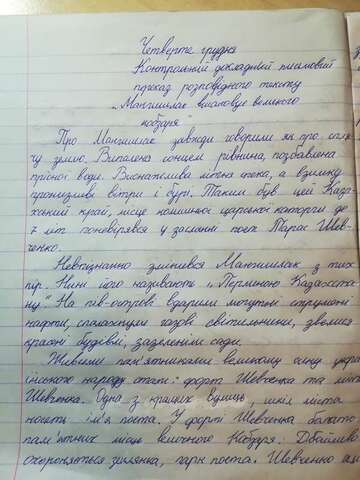 Четверте грудня
Контрольний докладний письмовий
переказ розповідного тексту
„Мангишлак вшановує великого
кобзаря
Про Мангишлак завжди говорили як про сплю-
чу землю. Випалена сонцем рівнина, позбавлена
прісної води. Виснажлива літня спека, а взимку
пронизливі вітри і бурі. Таким був цей Каза-
хський край, місце колишньої царської каторги де
7 літ поневірявся у засланні поет Тарас Шев-
ченко.
Невпізнанно змінився Мангишлак з тих
пір. Нині його називають „Перлиною Казахста-
ну". На пів-острові вдарили могутні струмені
нафти, спалахнули газові світильники, звелися
красні будівлі, зазеленіли сади.
Живими пам'ятниками великому сину укра-
їнського народу стали: форт Шевченка та
Шевченко. Одна з кращих вулиць, шкіл міста
носять ім'я поета. У форті Шевченка багато
пам'ятних місць великого Кобзаря. Дбайливо
охороняється землянка, парк поета. Шевченко